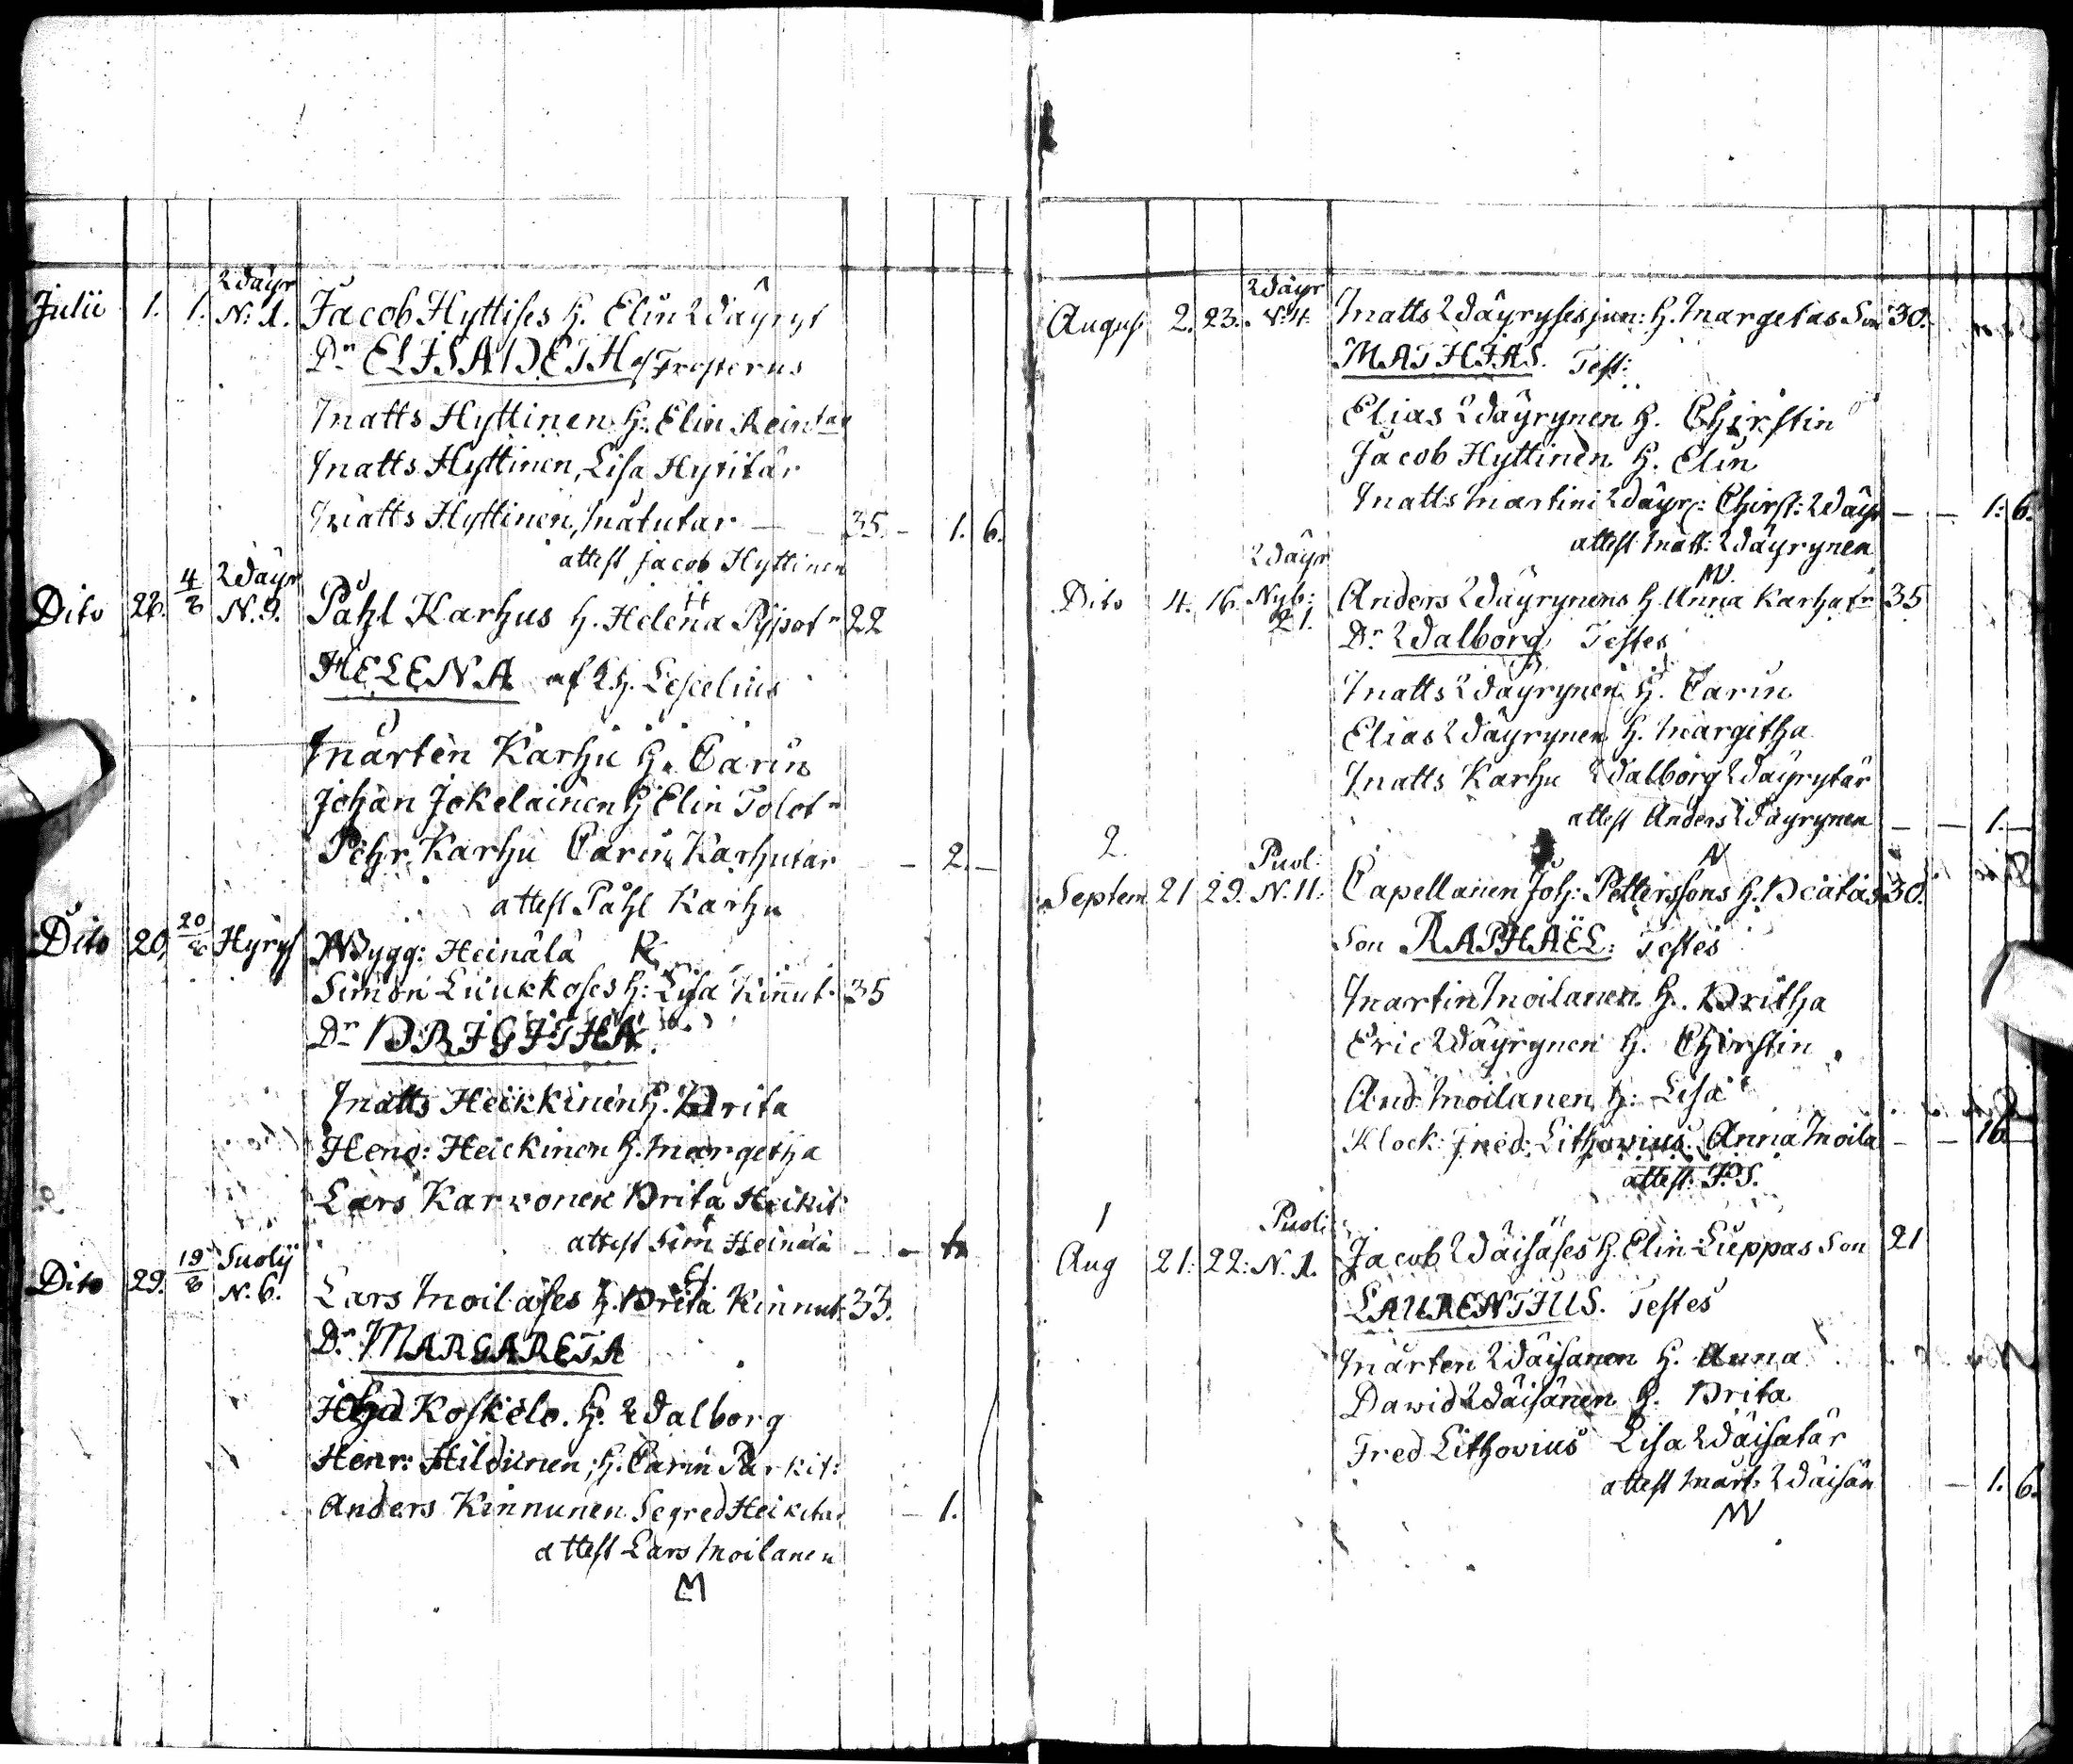 Wäyr
Julii 1. 1. N: 1. Jacob Hyttises h. Elin Wäyryt
Dr ELISABETH af Frosterus
Matts Hyttinen h: Elin Keintar
Matts Hyttinen, Lisa Hyttitär
Matts Hyttinen, Mätutar — 35 - 1. 6.
attest Jacob Hyttinen
Wäyr
Dito 26. 4/8 N. 9. Påhl Karhus h. Helena Pyypot r 22
HELENA af K.h. Lescelius
Mårten Karhu h. Carin
Johan Jokelainen h Elin Tolotr
Pehr Karhu Carin Karhutar - 2. —
attest Påhl Karhu
Dito 20, 20/8 Hyrys Nybygg: Heinälä
Simon Liukkoses h: Lisa Kinnut. 35
Dr BRIGITHA.
Matts Heikkinen h. Brita
Henr: Heickinen h. Margetha
Lars Karvonen Brita Heikit
attest Sim Heinälä — -
Suolij
Dito 29. 19/8 N. 6. Lars Moilases h. Brita Kinnut 33.
Dr MARGARETA
Koskelo. h. Walborg
Henr: Hildunen, h. Carin Parkit:
Anders Kinnunen Segred Heikitar - 1.
attest Lars Moilanen
M
Wäyr
August 2. 23. N: 4. Matts Wäyryses jun: h. Margetas Son 30.
MATHIAS. Test:
Elias Wäyrynen h. Chirstin
Jacob Hyttinen h. Elin
Matts Martini Wäyr: Chirst: Wäyr — — 1: 6.
attest Matt: Wäyrynen
Wäyr
Dito 4. 16. Nyb: Anders Wäyrynens h Anna Karhatr 35
21. Dr Walborg Testes
Matts Wäyrynen h. Carin
Elias Wäyrynen h. Margitha
Matts Karhu Walborg Wäyrytär
attest Anders Wäyrynen — — 1. —
2. Puol:
Septem 21 29. N. 11. Capellanen Joh: Petterssons h. Beatas 30.
Son RAPHAËL: Testes
Martin Moilanen h. Britha
Eric Wäyrynen h. Chirstin
And: Moilanen h: Lisa
Klock: Fred: Lithovius. Anna Moila — — 16
attest: J. P. S.
1 Puol:
Aug 21: 22: N. 1. Jacob Wäisäses h. Elin Lieppas Son 21
LAURENTIUS. Testes
Mårten Wäisänen h. Anna
Dawid Wäisänen h. Brita
Fred Lithovius Lisa Wäisätär
attest Mårt: Wäisän — 1. 6.